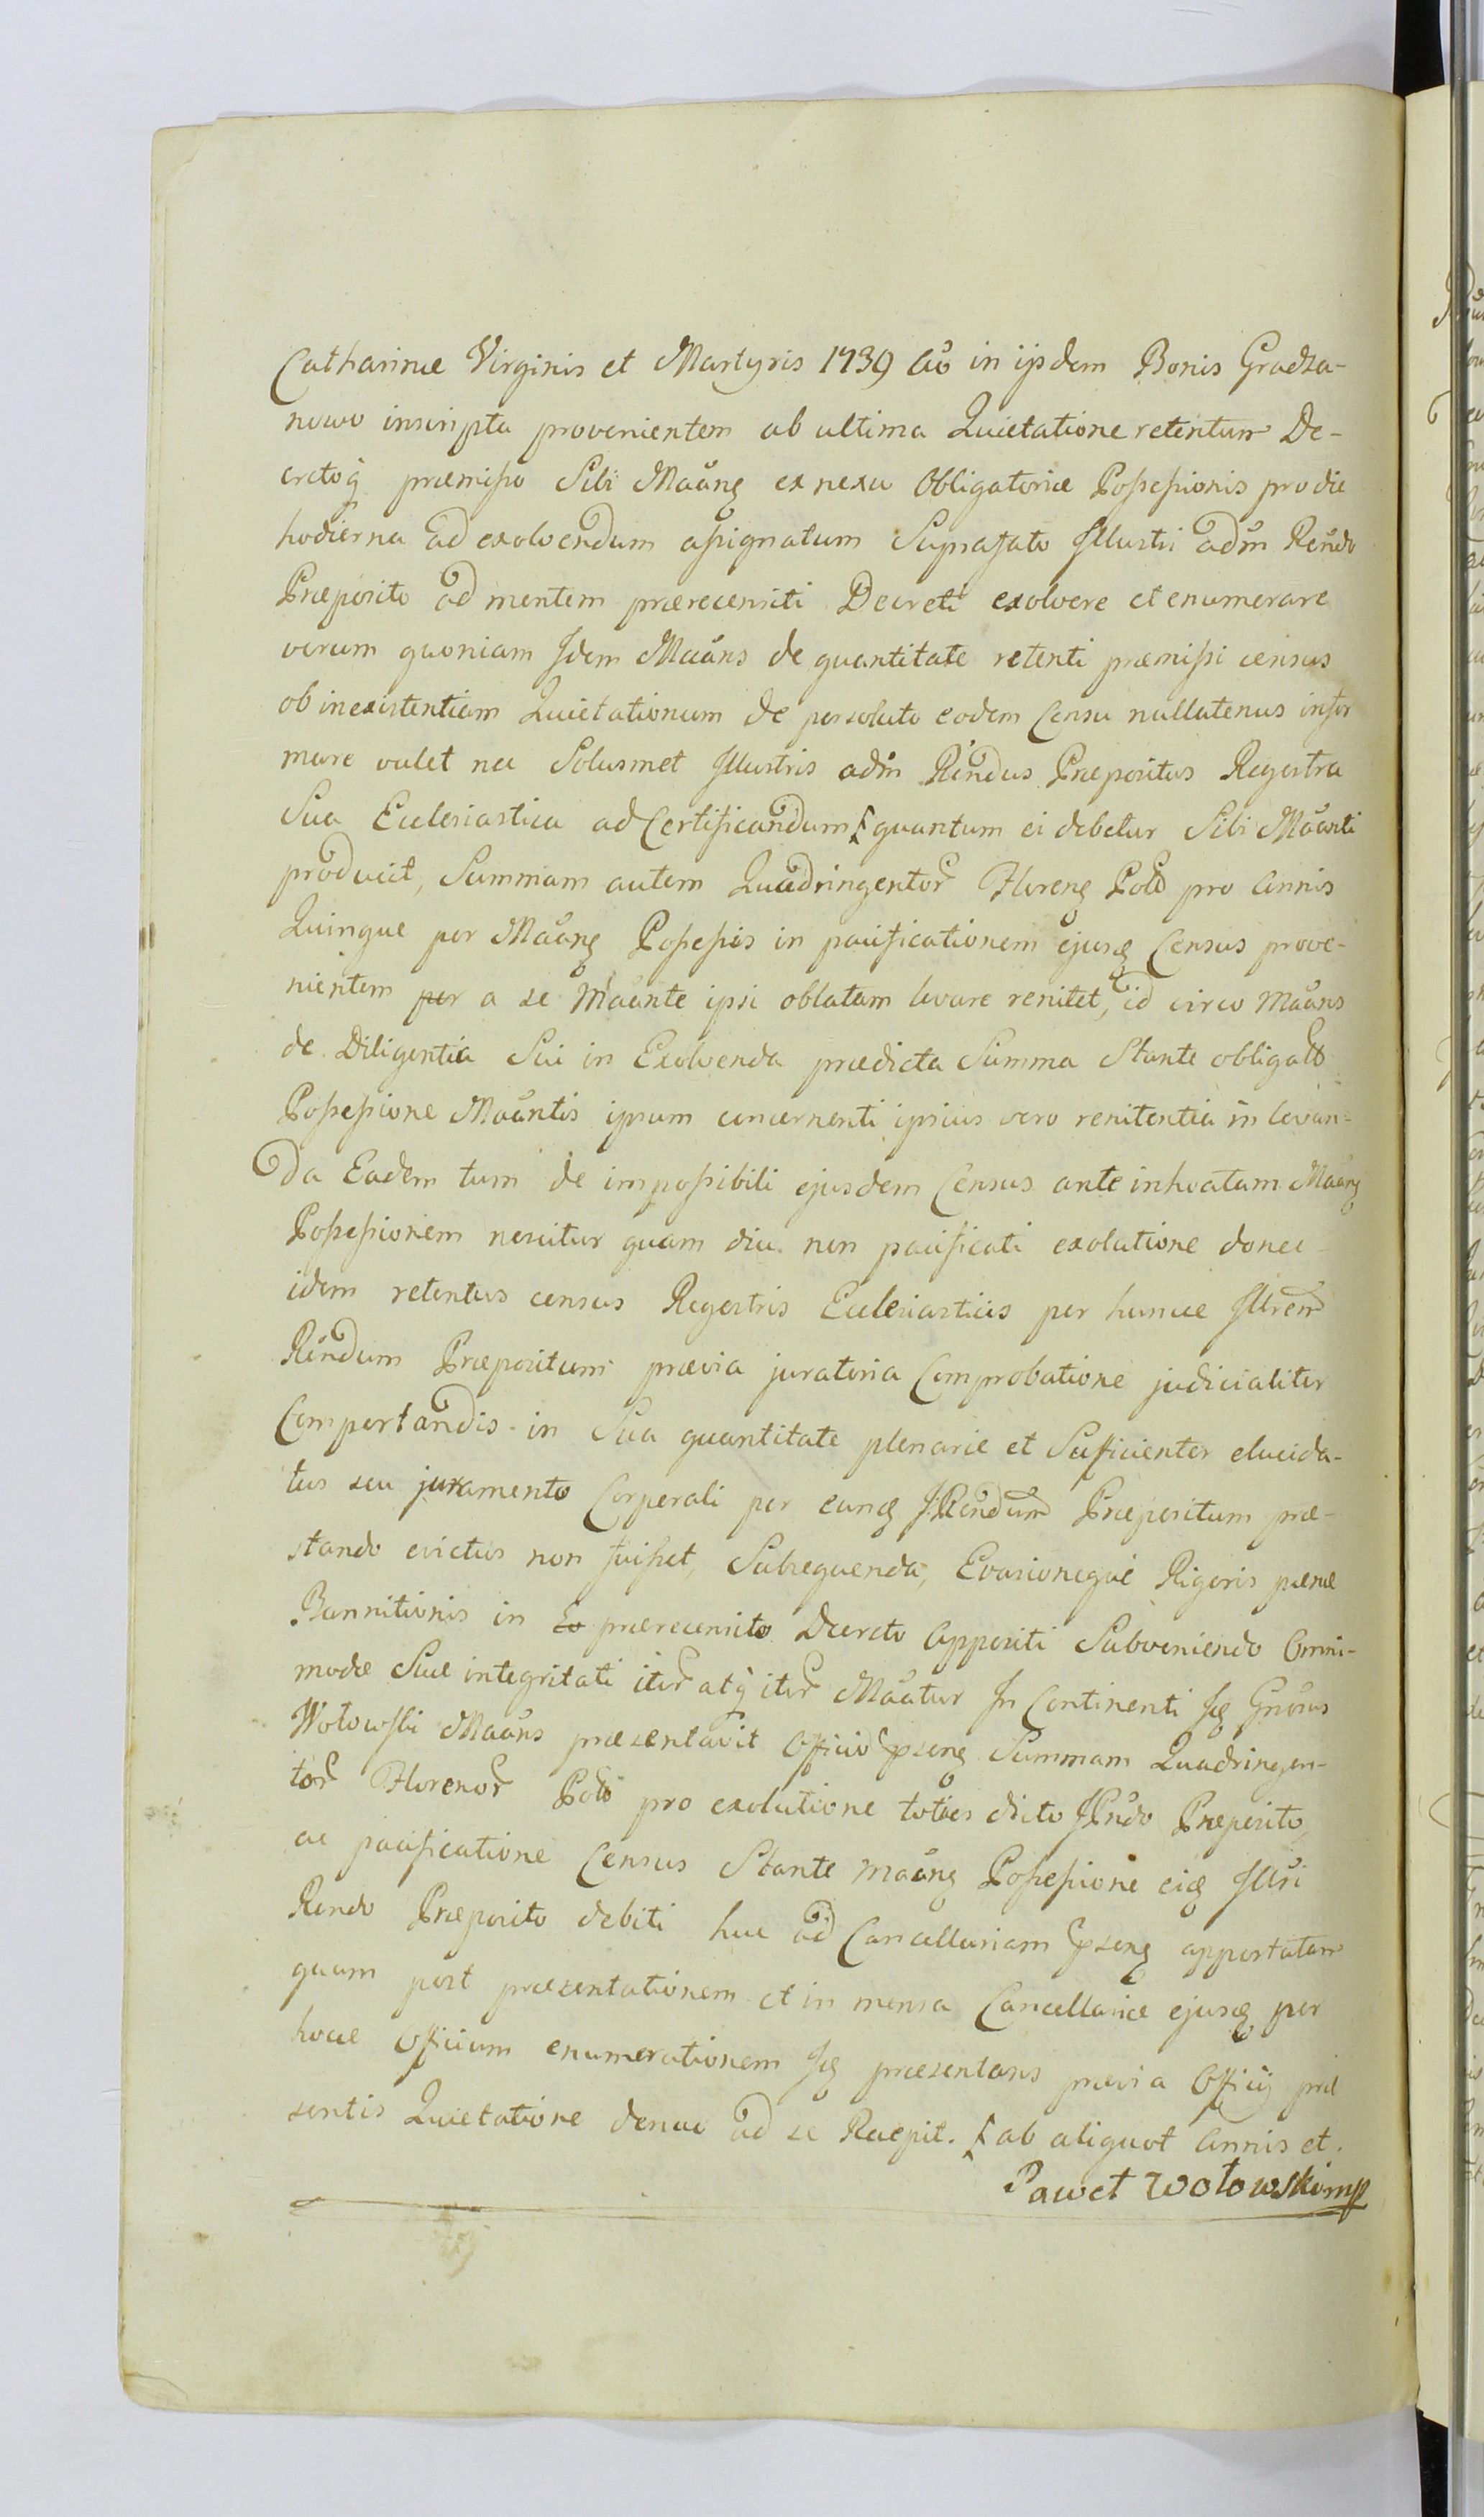 Catharinæ Virginis et Martyris 1739 ao in ijsdem Bonis Gradza-
nowo inscripta provenientem ab ultima Quietatione retentum De-
cretoq præmisso Sibi Maang ex nexu Obligatoriæ Possessionis pro die
hodierna ad exolvendum assignatum Suprafato Illustri adm Rendo
Præposito ad mentem prærecensiti Decreti exolvere et enumerare
verum quoniam Idem Maans de quantitate retenti præmissi census
ob inexistentiam Quietationum de persoluto eodem Censu nullatenus infor
mare valet nec Solusmet Illustris adm Rendus Præpositus Regestra
Sua Ecclesiastica ad Certificandum ꝭ quantum ei debetur Sibi Maanti
producit, Summam autem Quadringentor Floreng Pold pro Annis
Quinque per Maang Possessis in pacificationem ejusq Census prove-
nientem per a se Maante ipsi oblatam levare renitet, id circo Maans
de Diligentia Sui in Exolvenda prædicta Summa Stante obligatt
Possessione Maantis ipsum concernenti ipsius vero renitentia in levan-
da Eadem tum de impossibili ejusdem Census ante inhoatam Maang
Possessionem nescitur quam diu non pacificati exolutione donec
idem retentus census Regestris Ecclesiasticis per huncce Illrem
Rendum Præpositum prævia juratoria Comprobatione judicialiter
Comportandis in Sua quantitate plenarie et Sufficienter elucida-
tus seu juramento Corporali per eunq IRendum Præpositum præ-
stando evictus non fuisset, Subsequenda, Evasioneque Rigoris pænæ
Bannitionis in Eo prærecensito Decreto Appositi Subveniendo Omni-
modæ Suæ integritati iter atq iter Maatur In Continenti Iq Gnosus
Wołowski Maans præsentavit Officio pseng Summam Quadringen-
tor Florenor Pold pro exolutione toties dicto IRndo Præposito,
ac pacificatione Census Stante Maang Possessione eiq Illri
Rendo Præposito debiti huc ad Cancellariam pseng apportatam
quam post præsentationem et in mensa Cancellariæ ejusq per
hocce Officium enumerationem Iq præsentans prævia Officij præ
sentis Quietatione denuo ad se Recepit. ꝭ ab aliquot Annis et.
Paweł Wołowski mp